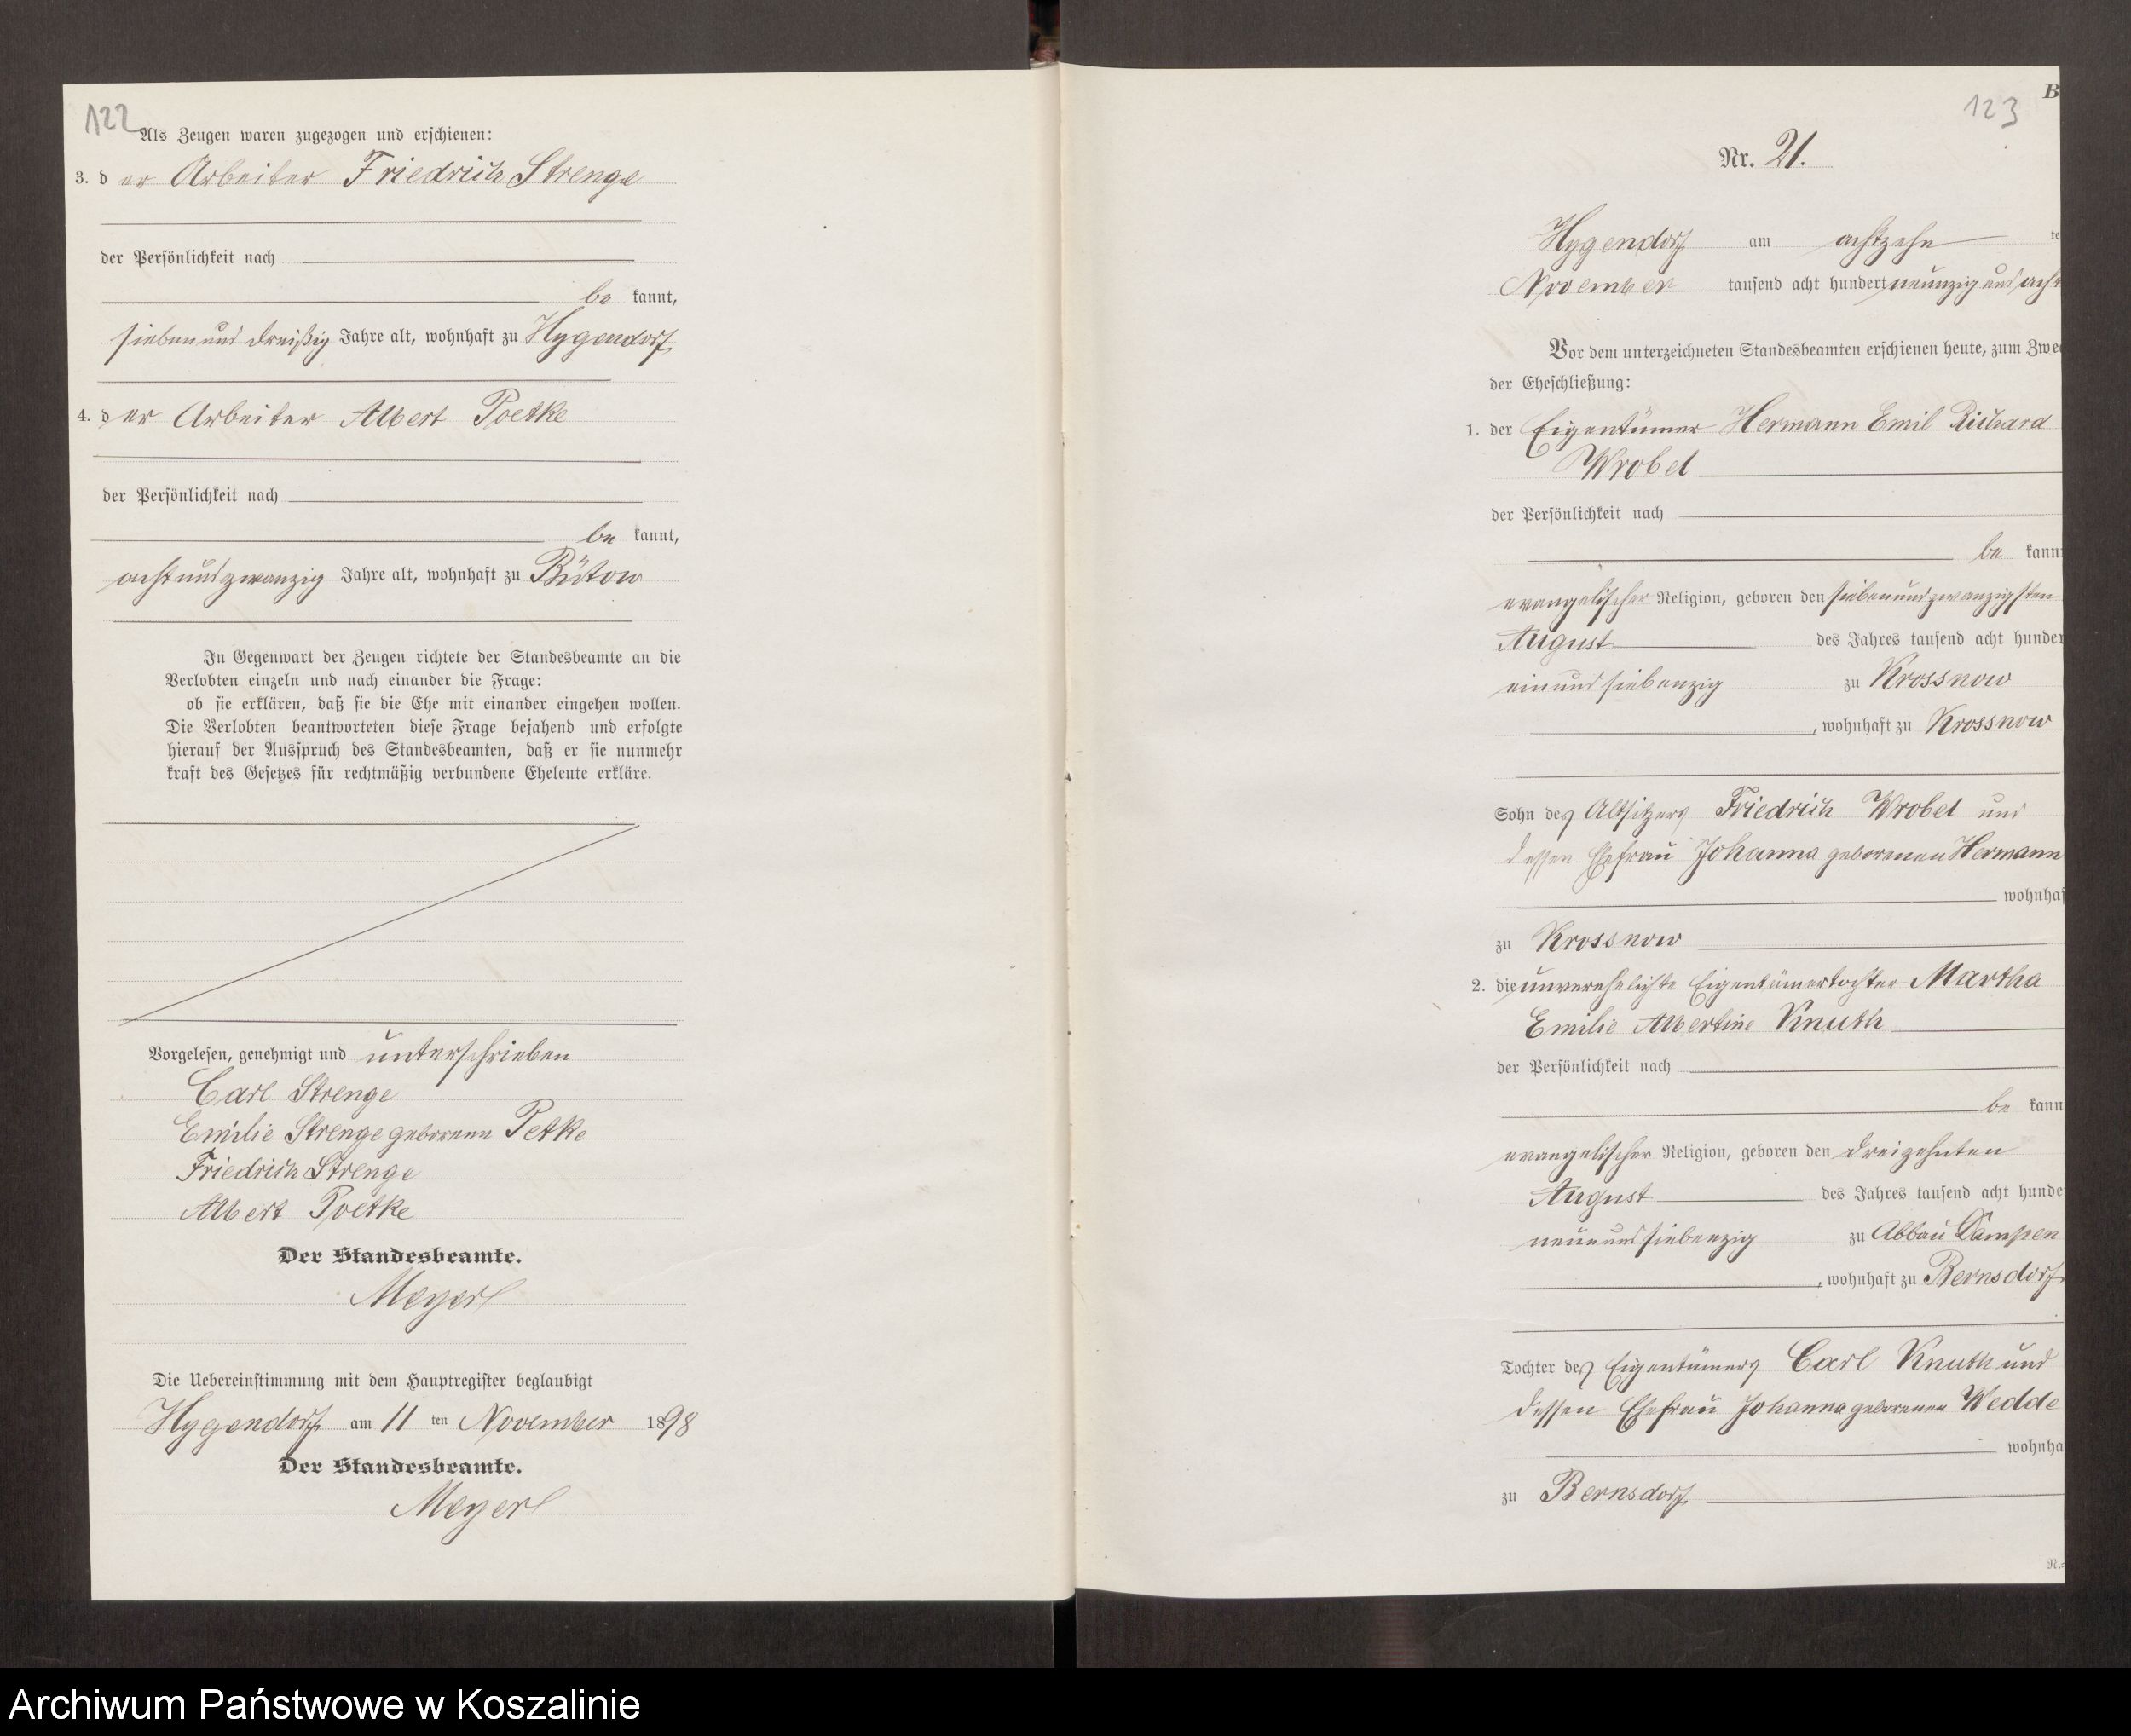 122
Als Zeugen waren zugezogen und erschienen:
3. d er Arbeiter Friedrich Strenge
der Persönlichkeit nach
be kannt,
siebenund dreißig Jahre alt, wohnhaft zu Hygendorf
4. d er Arbeiter Albert Poetke
der Persönlichkeit nach
be kannt,
achtundzwanzig Jahre alt, wohnhaft zu Bütow
In Gegenwart der Zeugen richtete der Standesbeamte an die
Verlobten einzeln und nach einander die Frage:
ob sie erklären, daß sie die Ehe mit einander eingehen wollen.
Die Verlobten beantworteten diese Frage bejahend und erfolgte
hierauf der Ausspruch des Standesbeamten, daß er sie nunmehr
kraft des Gesetzes für rechtmäßig verbundene Eheleute erkläre.
Vorgelesen, genehmigt und unterschrieben
Carl Strenge
Emilie Strenge geborene Petke
Friedrich Strenge
Albert Poetke
Der Standesbeamte.
Meyer
Die Uebereinstimmung mit dem Hauptregister beglaubigt
Hygendorf am 11 ten November 1898
Der Standesbeamte.
Meyer
B
123
Nr. 21.
Hygendorf am achtzehn te
November tausend acht hundert neunzig und acht
Vor dem unterzeichneten Standesbeamten erschienen heute, zum Zwe
der Eheschließung:
1. der Eigentümer Hermann Emil Richard
Wrobel
der Persönlichkeit nach
be kann
evangelischer Religion, geboren den siebenundzwanzigsten
August des Jahres tausend acht hunder
einundsiebenzig zu Krossnow
, wohnhaft zu Krossnow
Sohn des Altsitzers Friedrich Wrobel und
dessen Ehefrau Johanna geborenen Hermann
wohnhaf
zu Krossnow
2. die unverehelichte Eigentümertochter Martha
Emilie Albertine Knuth
der Persönlichkeit nach
be kann
evangelischer Religion, geboren den dreizehnten
August des Jahres tausend acht hunde
neunundsiebenzig zu Abbau Dampen
, wohnhaft zu Bernsdorf
Tochter des Eigentümers Carl Knuth und
dessen Ehefrau Johanna geborenen Wedde
wohnha
zu Bernsdorf
Archiwum Państwowe w Koszalinie